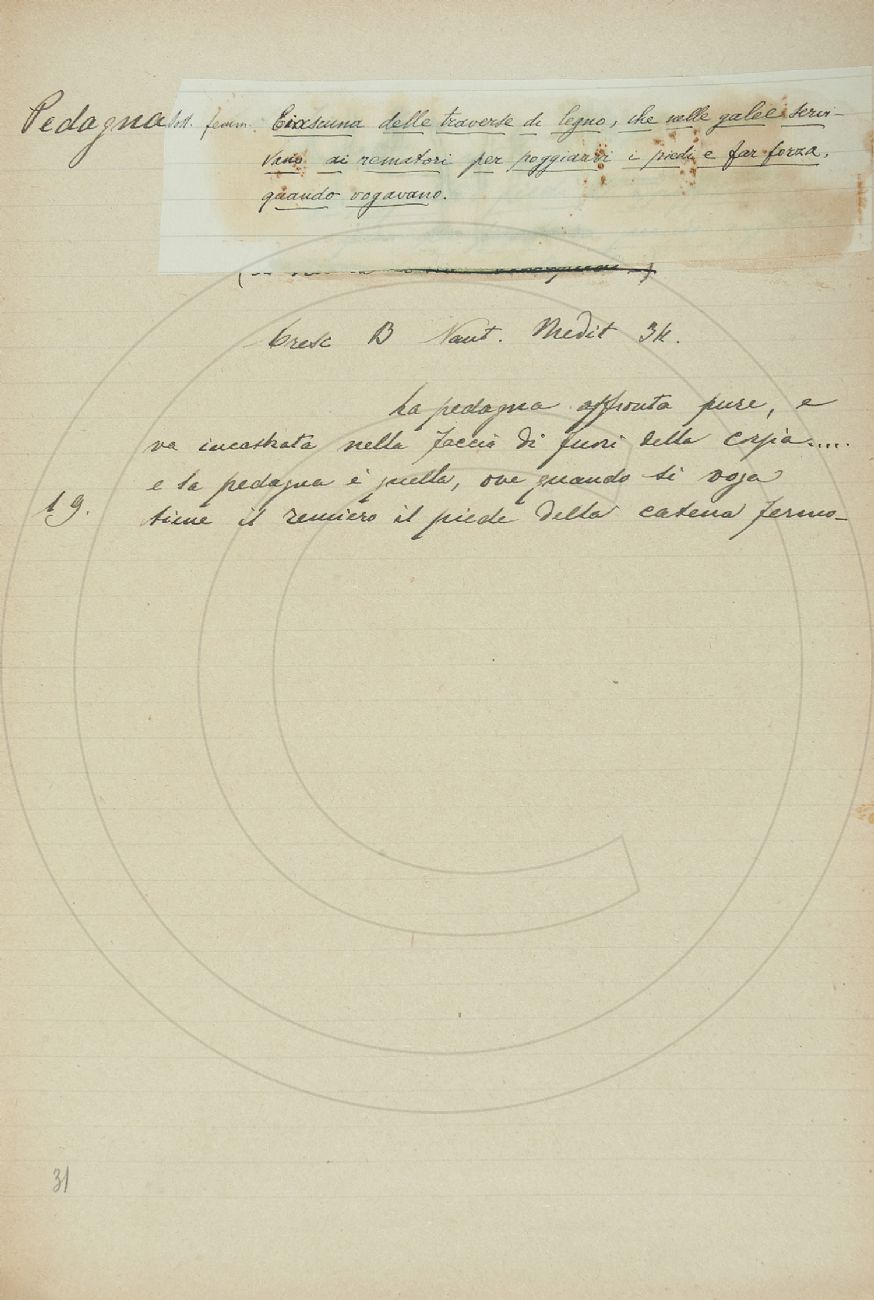 Pedagna sost. femm. Ciascuna delle traverse di legno, che nelle galee servi-
vano ai rematori per poggiarvi i piedi e far forza,
quando vogavano.
Cresc B Naut. Medit 34.
La pedagna affronta pure, e
va incastrata nella faccia di fuori della corsia....
e la pedagna è quella, ove quando si voga
19. tiene il remiero il piede della catena fermo-
31